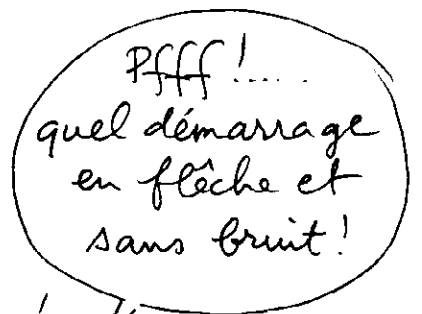 Pfff!.....
quel démarrage
en flêche et
sans bruit!